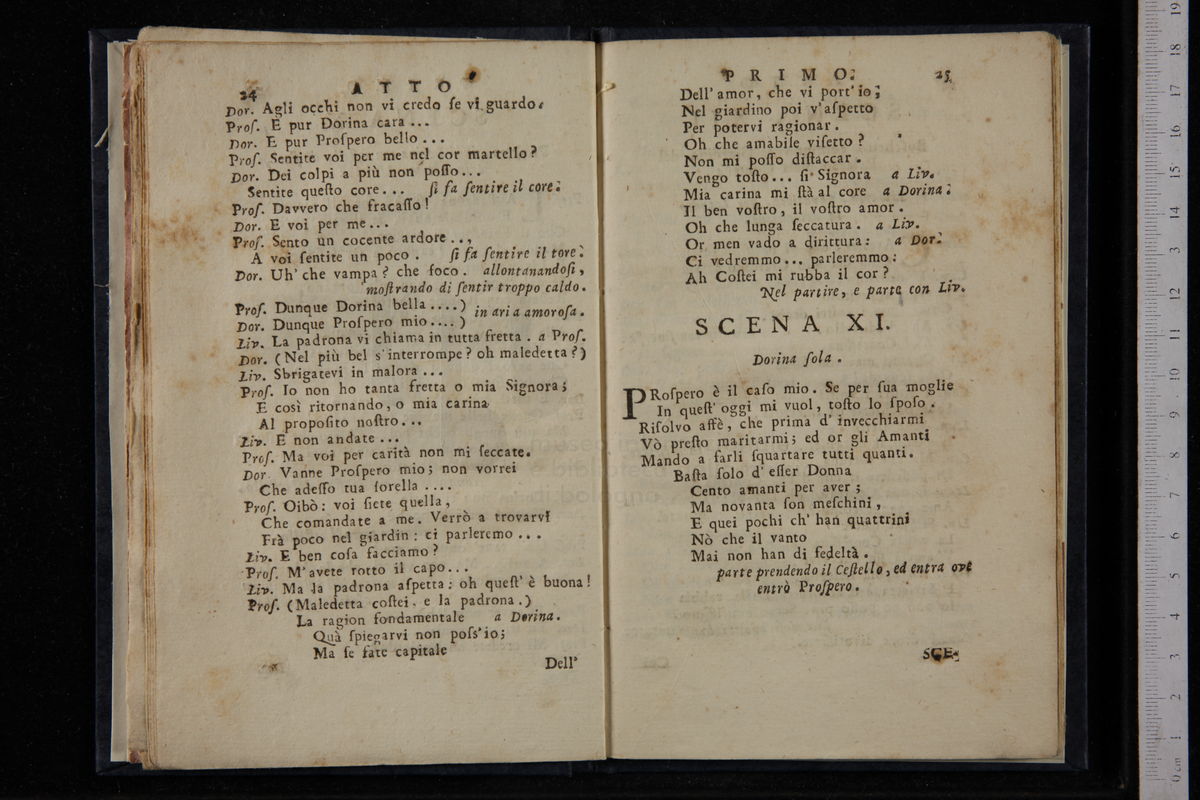 24 ATTO
Dor. Agli occhi non vi credo ſe vi guardo.
Proſ. E pur Dorina cara ...
Dor. E pur Proſpero bello ...
Proſ. Sentite voi per me nel cor martello?
Dor. Dei colpi a più non poſſo...
Sentite queſto core... ſi fa ſentire il core.
Proſ. Davvero che fracaſſo!
Dor. E voi per me...
Proſ. Sento un cocente ardore ...,
A voi ſentite un poco . ſi fa ſentire il tore.
Dor. Uh' che vampa? che foco . allontanandoſi,
moſtrando di ſentir troppo caldo.
Proſ. Dunque Dorina bella ....) in aria amoroſa.
Dor. Dunque Proſpero mio ....)
Liv. La padrona vi chiama in tutta fretta . a Proſ.
Dor. (Nel più bel s'interrompe? oh maledetta?)
Liv. Sbrigatevi in malora ...
Proſ. Io non ho tanta fretta o mia Signora;
E così ritornando, o mia carina
Al propoſito noſtro...
Liv. E non andate ...
Proſ. Ma voi per carità non mi ſeccate.
Dor. Vanne Proſpero mio; non vorrei
Che adeſſo tua ſorella ....
Proſ. Oibò: voi ſiete quella,
Che comandate a me. Verrò a trovarvi
Frà poco nel giardin: ci parleremo ...
Liv. E ben coſa facciamo?
Proſ. M'avete rotto il capo...
Liv. Ma la padrona aſpetta: oh queſt' è buona!
Proſ. (Maledetta coſtei, e la padrona.)
La ragion fondamentale a Dorina.
Quà ſpiegarvi non poſs'io;
Ma ſe fate capitale
Dell'
PRIMO. 25
Dell' amor, che vi port'io;
Nel giardino poi v'aſpetto
Per potervi ragionar.
Oh che amabile viſetto?
Non mi poſſo diſtaccar.
Vengo toſto... ſi Signora a Liv.
Mia carina mi ſtà al core a Dorina.
Il ben voſtro, il voſtro amor.
Oh che lunga ſeccatura. a Liv.
Or men vado a dirittura: a Dor.
Ci vedremmo... parleremmo:
Ah Coſtei mi rubba il cor?
Nel partire, e parte con Liv.
SCENA XI.
Dorina ſola.
PRoſpero è il caſo mio. Se per ſua moglie
In queſt' oggi mi vuol, toſto lo ſpoſo.
Riſolvo affè, che prima d'invecchiarmi
Vò preſto maritarmi; ed or gli Amanti
Mando a farli ſquartare tutti quanti.
Baſta ſolo d'eſſer Donna
Cento amanti per aver;
Ma novanta ſon meſchini,
E quei pochi ch' han quattrini
Nò che il vanto
Mai non han di fedeltà.
parte prendendo il Ceſtello, ed entra ove
entrò Proſpero.
SCE-